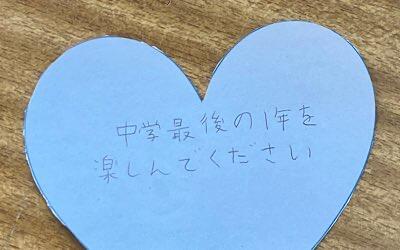 中学最後の1年を
楽しんでください